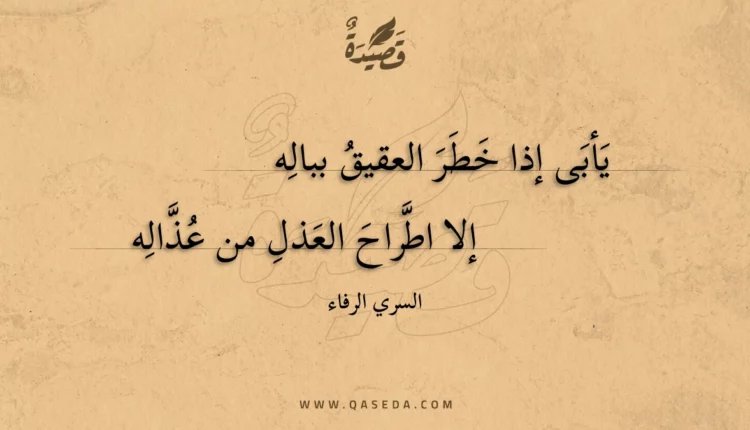 قَصِيْدَةٌ
يَأبَى إذا خَطَرَ العقيقُ ببالِه
إلا اطَّراحَ العَذلِ من عُذَّالِه
السري الرفاء
WWW.QASEDA.COM